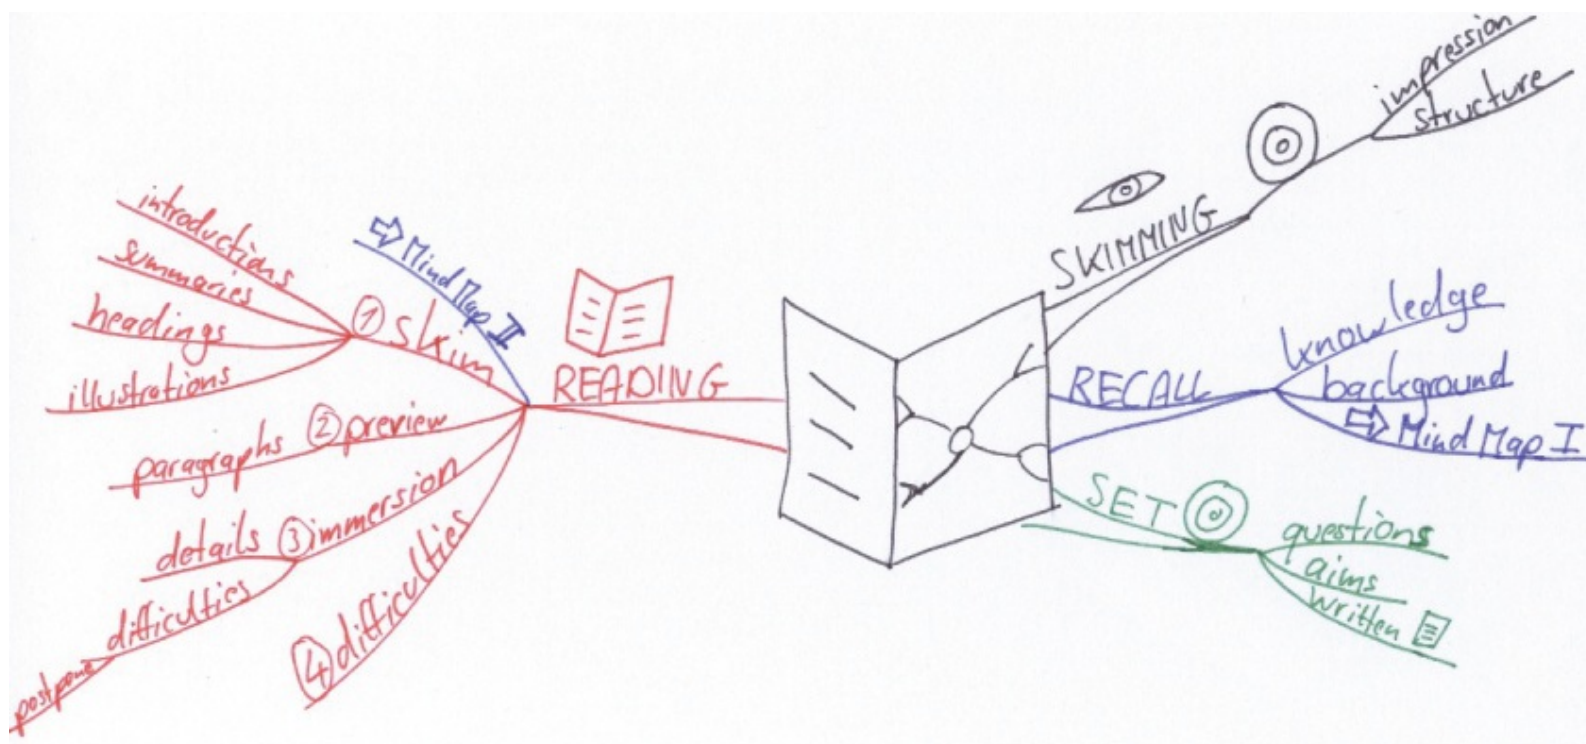 SKIMMING
impression
structure
RECALL
knowledge
background
Mind Map I
SET
questions
aims
written
READING
Mind Map II
① skim
introductions
summaries
headings
illustrations
② preview
paragraphs
③ immersion
details
difficulties
postpone
④ difficulties